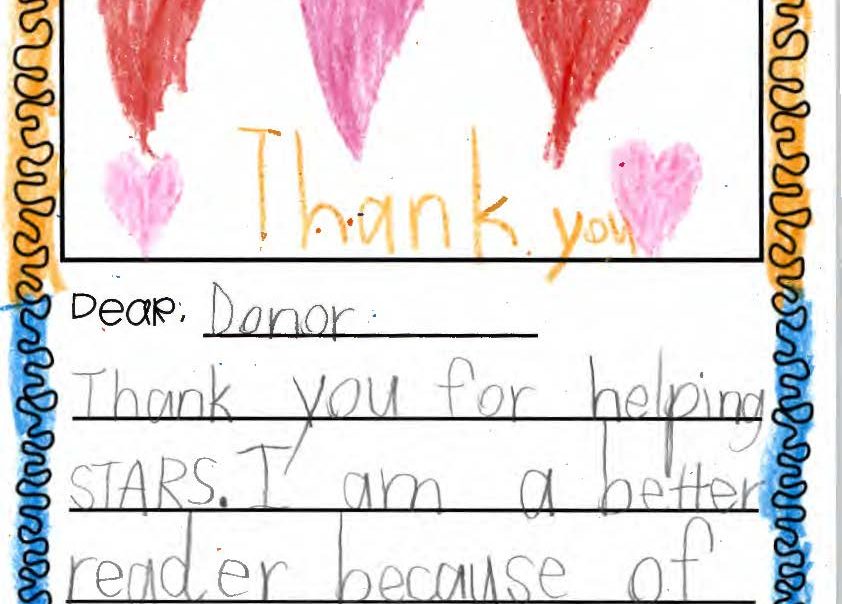 Thank you
Dear, Donor
Thank you for helping
STARS. I am a better
reader because of